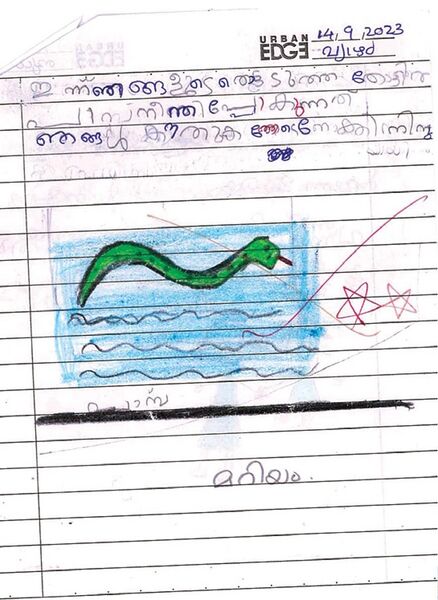 URBAN EDGE 14,9,2023
വ്യാഴം
ഇന്ന് ഞങ്ങളുടെ തോട്ടിൽ
പാമ്പ് നീന്തിപ്പോകുന്നത്
ഞങ്ങൾ കൗതുക ത്തോടെ നോക്കിനിന്നു
പാമ്പ്
മറിയം.